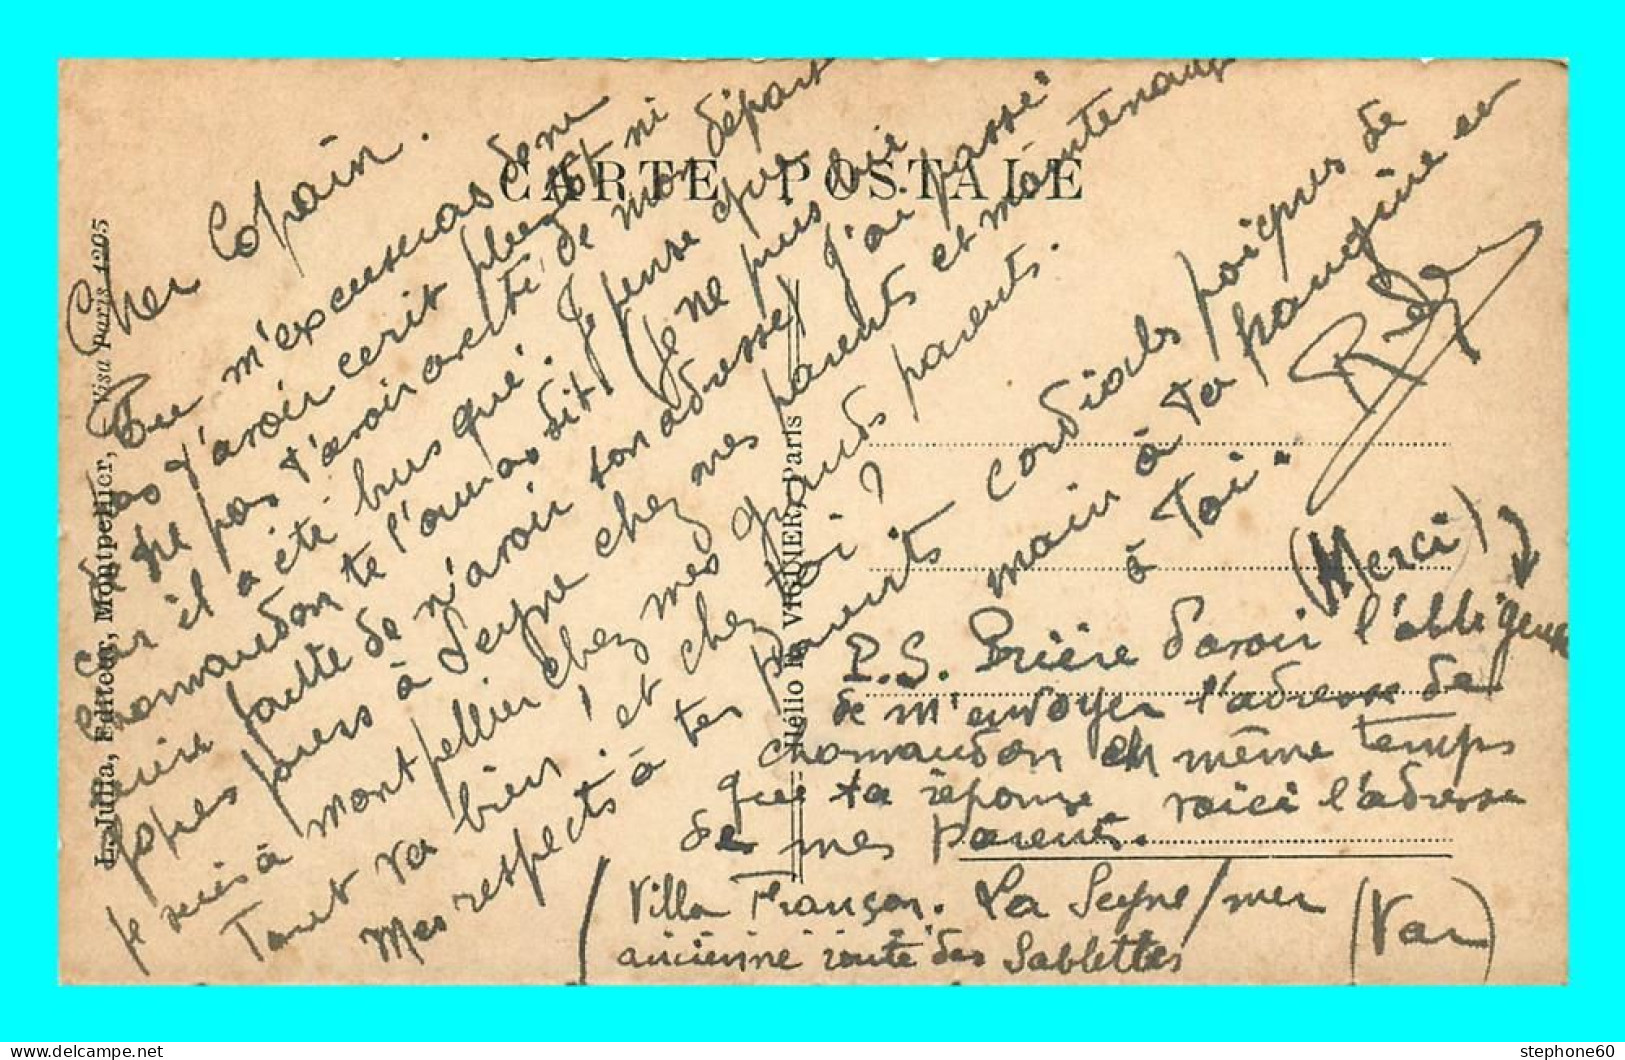 CARTE POSTALE
Cher Copain.
Tu m'excuseras de ne
pas t'avoir ecrit plus tôt ni
de ne pas t'avoir averti de mon départ
Car il a été brusqué. Je pense que
Chomaudon te l'auras dit! (Je ne puis lui
ecrire faute de n'avoir son adresse) J'ai passé
jours à Seyne chez mes parents et maintenant
je suis à montpellier chez mes grands parents.
Tout va bien! et chez toi?
Mes respects à tes parents cordiales poignes de
main à ta frangine et
à Toi"
(Merci)
P.S. Prière d'avoir l'obligence
de m'envoyer l'adresse de
chomaudon en même temps
que ta réponse. voici l'adresse
de mes parents.
(Villa Françon. La Seyne/mer (Var)
ancienne route des Sablettes
L. Julia, Editeur, Montpellier, Visa Paris 1205
Hélio VIGNIER, Paris
stephone60